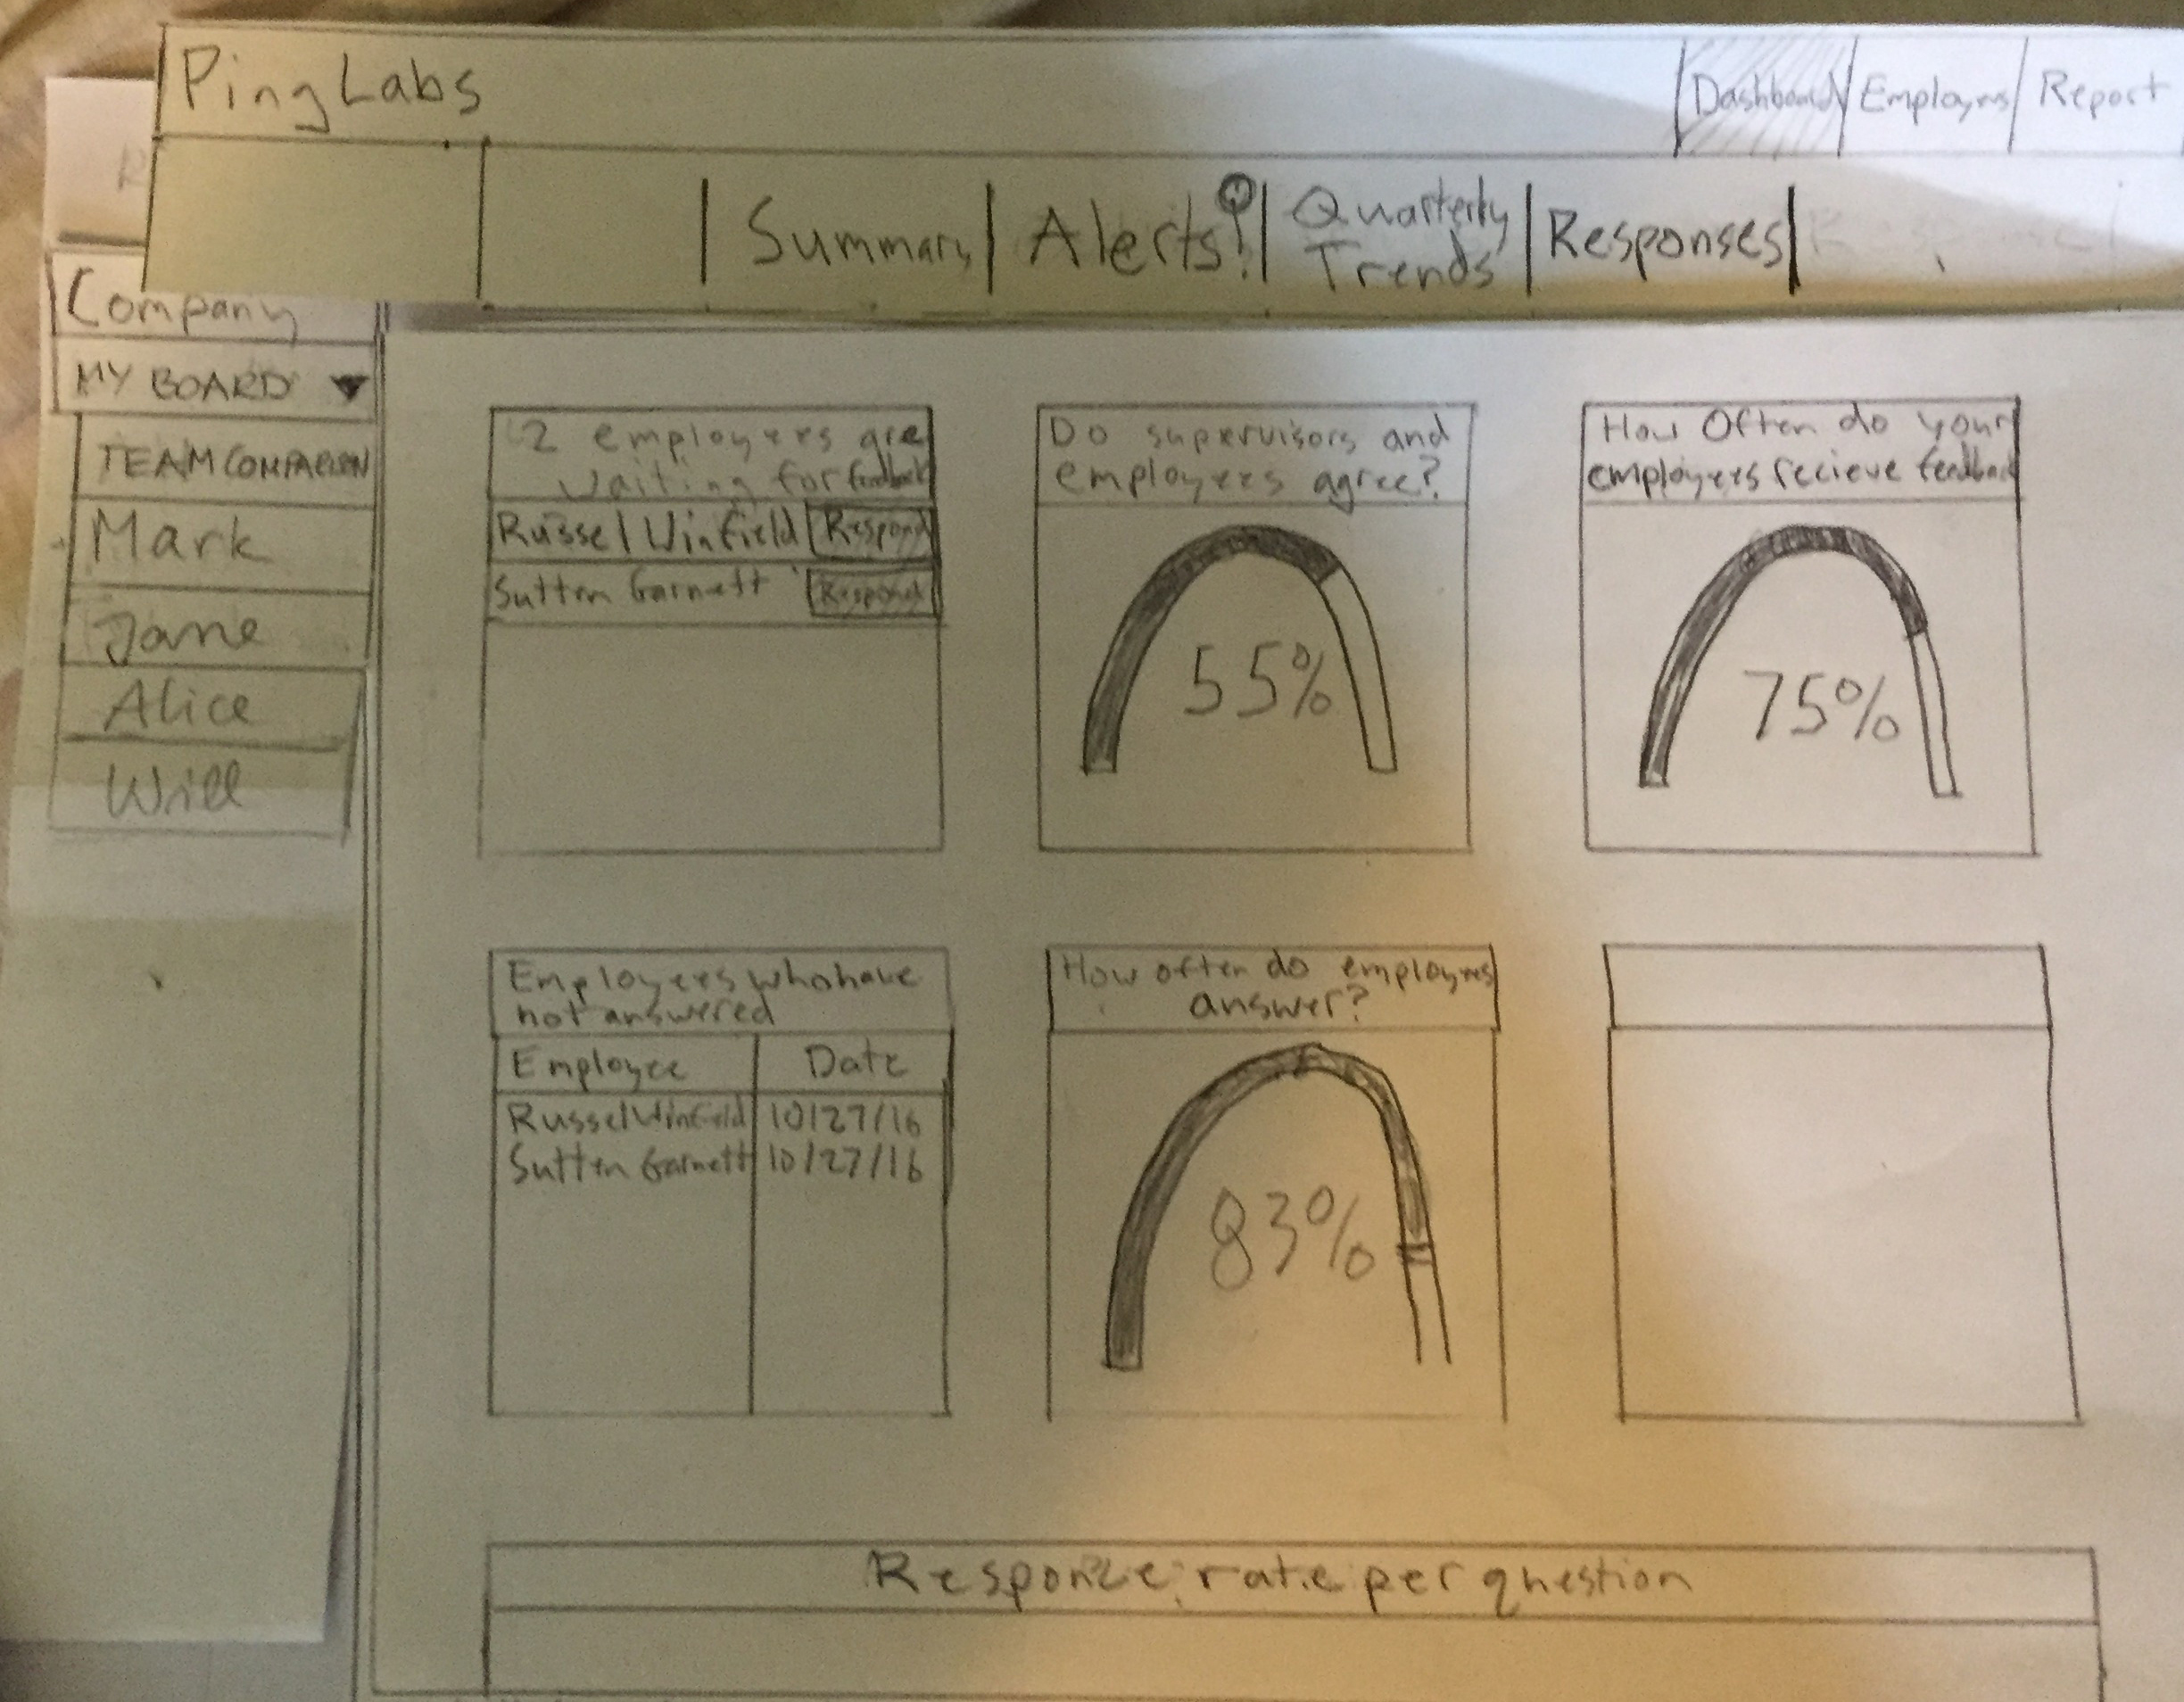 PingLabs
Dashboard
Employees
Report
Summary
Alerts!
Quarterly
Trends
Responses
Company
MY BOARD
TEAM COMPARISON
Mark
Jane
Alice
Will
2 employees are
waiting for feedback
Russel Winfield Respond
Sutten Garnett Respond
Do supervisors and
employees agree?
55%
How Often do your
employees recieve feedback
75%
Employees who have
not answered
Employee Date
Russel Winfield 10/27/16
Sutten Garnett 10/27/16
How often do employees
answer?
83%
Response rate per question